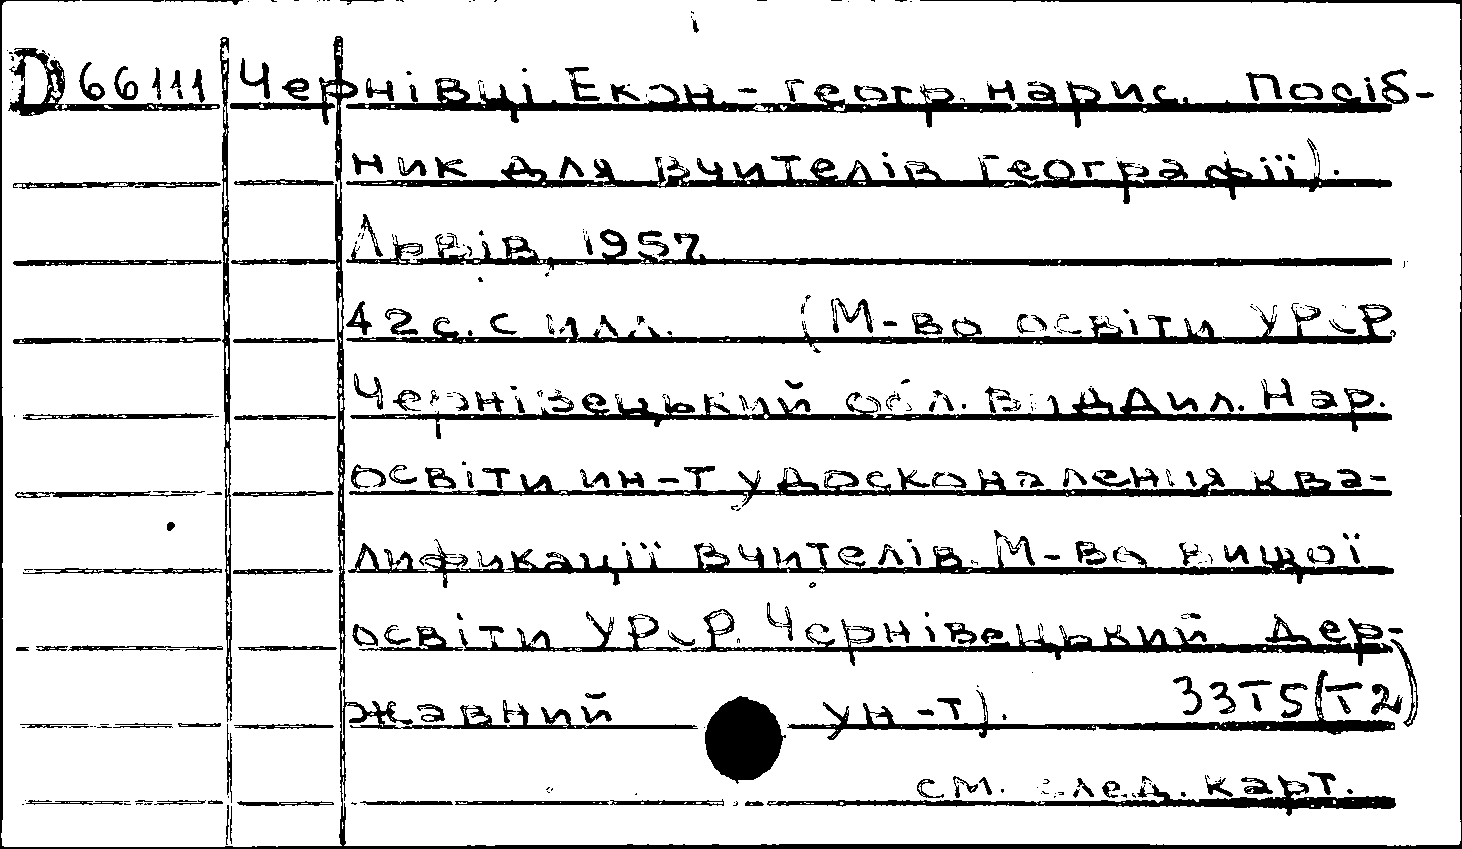 D 66111 Чернівці. Екон.-геогр. нарис. Посіб-
ник для вчителів географії).
Львів, 1957.
42 с. с илл. (М-во освіти УРСР.
Чернівецький обл. виддил. Нар.
освіти ин-т удосконалення ква-
лификації вчителів. М-во вищої
освіти УРСР. Чернівецький дер-
жавний ун-т). 33Т5(Т2)
см. след. карт.